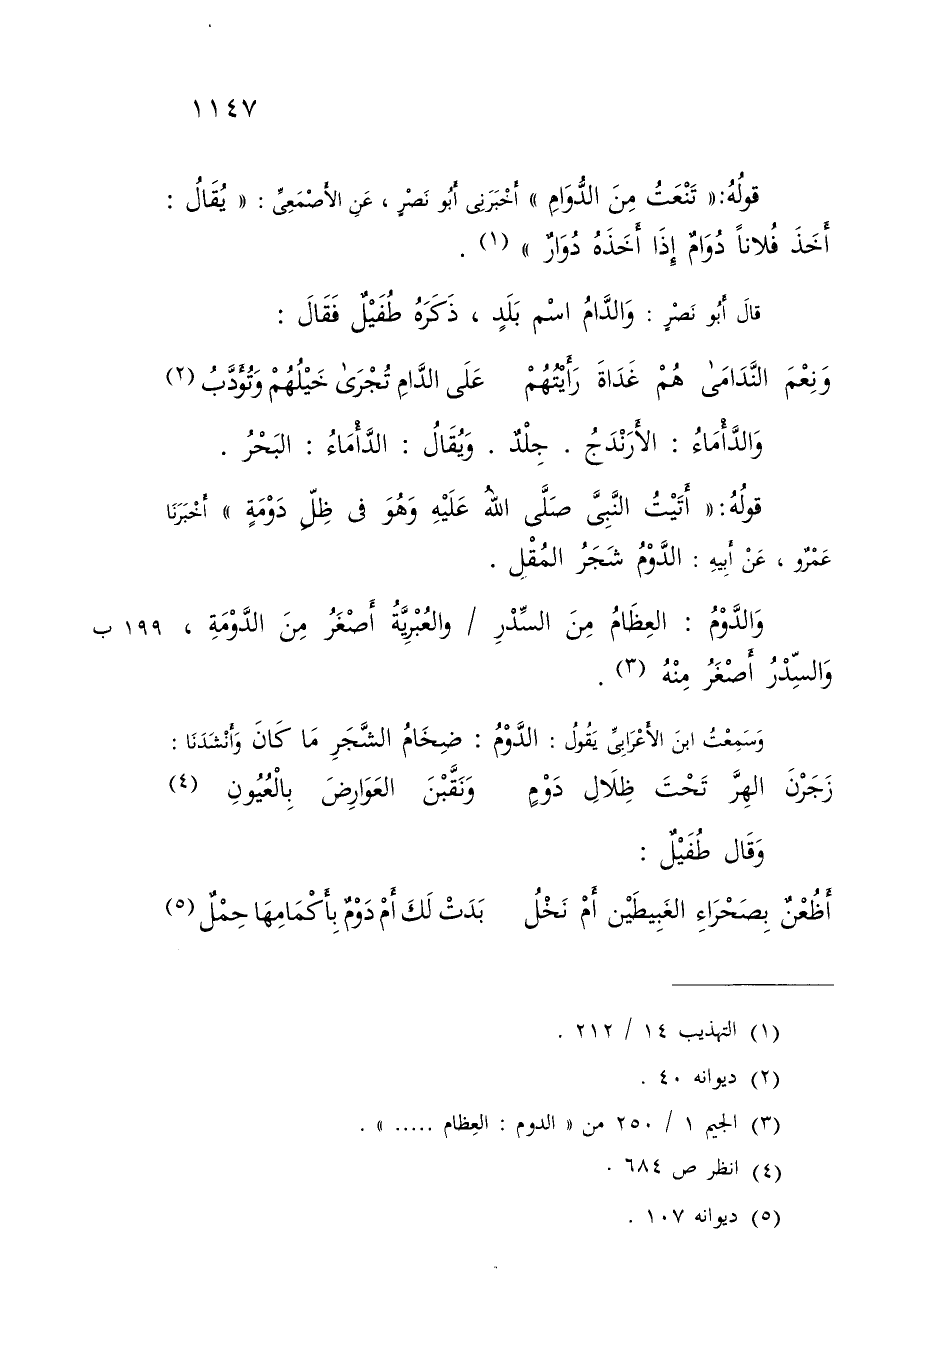 ١١٤٧
قولُهُ: « تَنْعَتُ مِنَ الدُّوَامِ » أَخْبَرَنِى أَبُو نَصْرٍ ، عَنِ الأَصْمَعِىِّ : « يُقَالُ :
أَخَذَ فُلاناً دُوَامٌ إِذَا أَخَذَهُ دُوَارٌ » (١) .
قالَ أَبُو نَصْرٍ : وَالدَّامُ اسْم بَلَدٍ ، ذَكَرَهُ طُفَيْلٌ فَقَالَ :
وَنِعْمَ النَّدَامَىٰ هُمْ غَدَاةَ رَأَيْتُهُمْ عَلَى الدَّامِ تُجْرَىٰ خَيْلُهُمْ وَتُؤَدَّبُ (٢)
وَالدَّأْمَاءُ : الأَرَنْدَجُ . جِلْدٌ . وَيُقَالُ : الدَّأْمَاءُ : البَحْرُ .
قولُهُ: « أَتَيْتُ النَّبِىَّ صَلَّى اللهُ عَلَيْهِ وَهُوَ فى ظِلِّ دَوْمَةٍ » أَخْبَرَنَا
عَمْرٌو ، عَنْ أَبِيهِ : الدَّوْمُ شَجَرُ المُقْلِ .
وَالدَّوْمُ : العِظَامُ مِنَ السِّدْرِ / والعُبْرِيَّةُ أَصْغَرُ مِنَ الدَّوْمَةِ ، ١٩٩ ب
وَالسِّدْرُ أَصْغَرُ مِنْهُ (٣) .
وَسَمِعْتُ ابنَ الأَعْرَابِىِّ يَقُولُ : الدَّوْمُ : ضِخَامُ الشَّجَرِ مَا كَانَ وَأَنْشَدَنَا :
زَجَرْنَ الهِرَّ تَحْتَ ظِلَالِ دَوْمٍ وَنَقَّبْنَ العَوَارِضَ بِالْعُيُونِ (٤)
وَقَال طُفَيْلٌ :
أَظُعْنٌ بِصَحْرَاءِ الغَبِيطَيْن أَمْ نَخْلُ بَدَتْ لَكَ أَمْ دَوْمٌ بِأَكْمَامِهَا حِمْلٌ (٥)
(١) التهذيب ١٤ / ٢١٢ .
(٢) ديوانه ٤٠ .
(٣) الجيم ١ / ٢٥٠ من « الدوم : العِظام ..... » .
(٤) انظر ص ٦٨٤ .
(٥) ديوانه ١٠٧ .